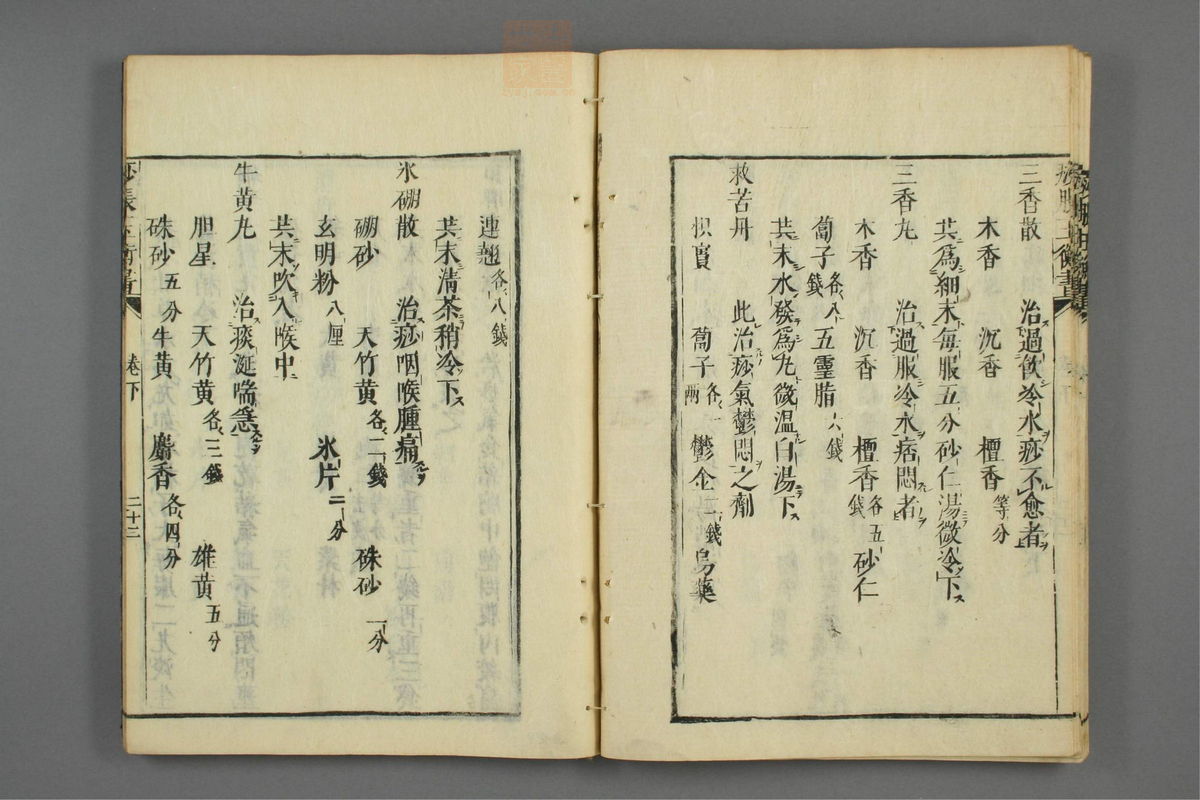 痧脹玉衡書
三香散 治過飲冷水痧不愈者
木香 沉香 檀香等分
共爲細末每服五分砂仁湯微冷下
三香丸 治過服冷水痞悶者
木香 沉香 檀香各五錢 砂仁
蔔子各八錢 五靈脂六錢
共末水發爲丸微温白湯下
救苦丹 此治痧氣鬱悶之劑
枳實 蔔子各一兩 鬱金二錢 烏藥
連翹各八錢
共末清茶稍冷下
氷硼散 治痧咽喉腫痛
硼砂 天竹黄各二錢 硃砂一分
玄明粉八厘 氷片二分
共末吹入喉中
牛黄丸 治痰涎喘急
胆星 天竹黄各三錢 雄黄五分
硃砂五分 牛黄 麝香各四分
痧脹玉衡書 卷下 二十二